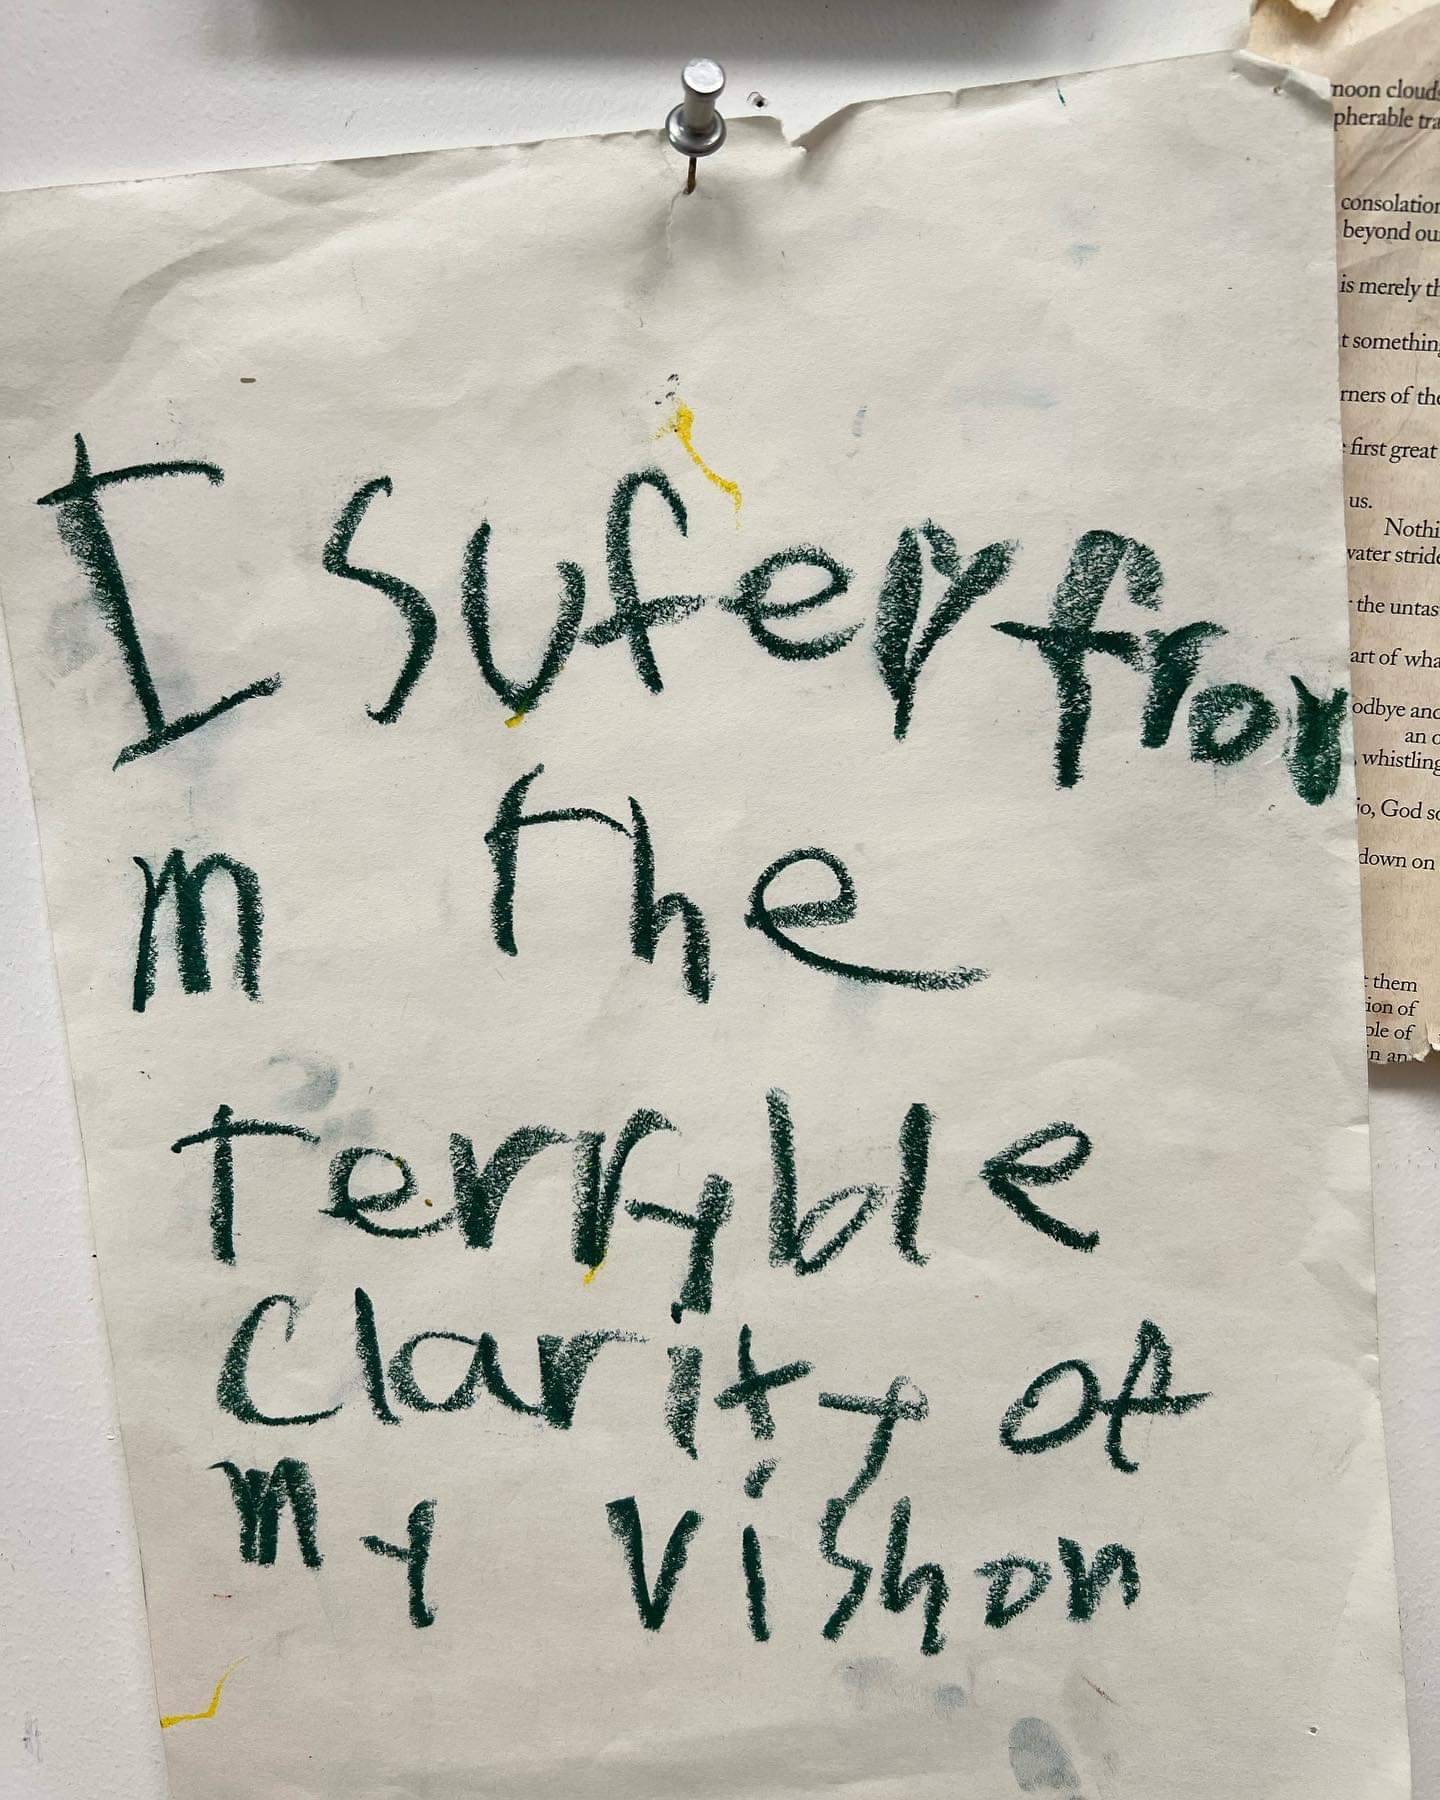 I Sufer fro
m the
terryble
Clarity of
my vishon
noon clouds
pherable tra
consolation
beyond ou
is merely th
t something
rners of the
first great
us.
Nothi
water stride
the untas
art of wha
odbye and
an o
, whistling
jo, God so
down on
them
ion of
ple of
in an